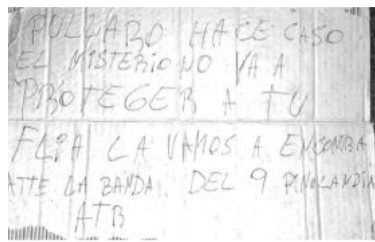 PULLARO HACE CASO
EL MISTERIO NO VA A
PROTEGER A TU
FLIA LA VAMOS A ENCONTRA
ATTE LA BANDA DEL 9 PINOLANDIA
ATB